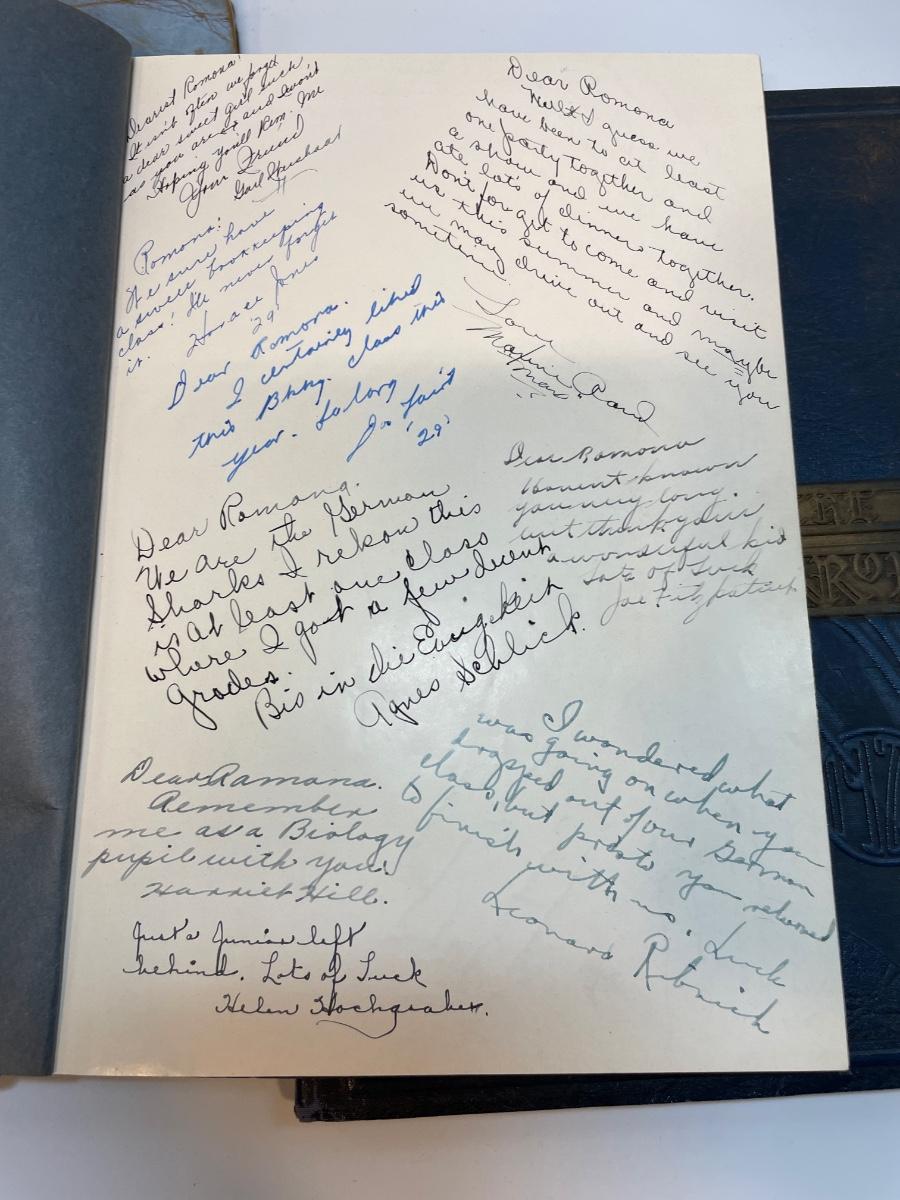 Dearest Romona!
It isn't often we forget
a dear sweet girl such
as you are and I won't
Hoping you'll Rem. me
Your Friend
Gail
Romona:
We sure have
a swell bookkeeping
class! I'll never forget
it. Horace Jones
'29'
Dear Romona.
I certainly liked
this Bkkg. class this
year. So long
Joe Fair
'29'
Dear Romona.
We are the German
Sharks I rekon this
is at least one class
where I got a few decent
grades.
Bis in die Ewigkeit
Agnes Schlick.
Dear Ramona.
Remember
me as a Biology
pupil with you.
Harriet Hill.
Just a Junior left
behind. Lots of Luck
Helen Hochgraber.
Dear Romona
Well I guess we
have been to at least
one party together and
a show and we have
ate lots of dinners together.
Don't forget to come and visit
us this summer and maybe
we may drive out and see you
sometime.
Love
Rand
Dear Romona
Havent known
you very long.
but think your
a wonderful kid
Lots of Luck
Joe Fitzpatrick
I wondered what
was going on when you
dropped out of our German
class, but presto you returned
to finish with us. Luck
Leonard Ribnick
THE